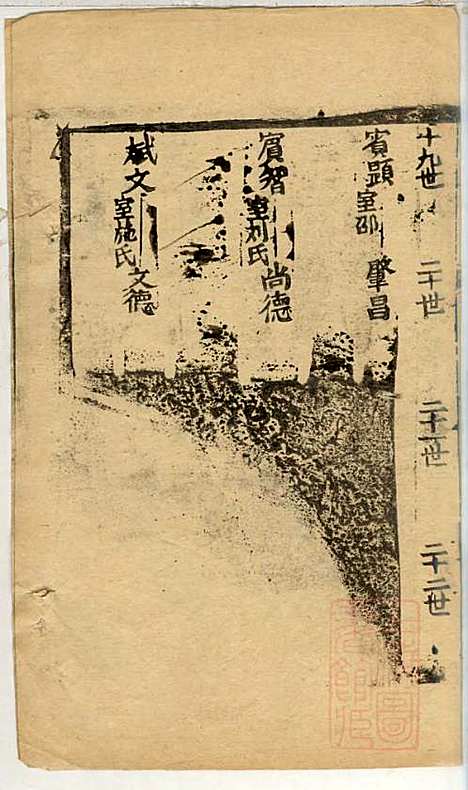 十九世
二十世
二十一世
二十二世
賓顕 室邵 肇昌
賓智 室刘氏 尚德
斌文 室施氏 文德